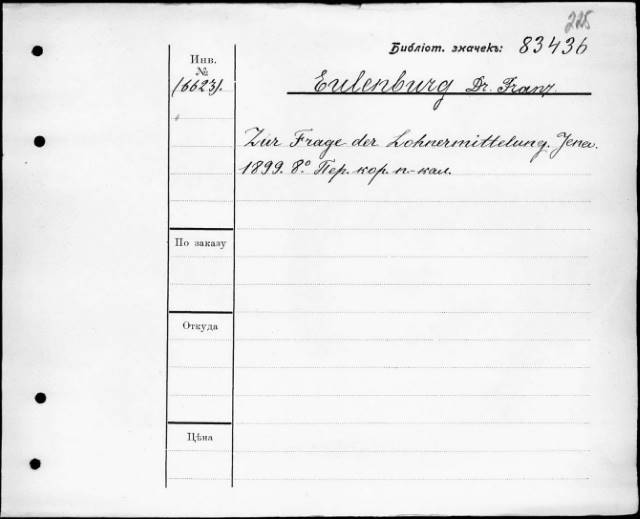 225
Библіот. значекъ: 83436
Инв.
№
(6623).
Eulenburg Dr. Franz
Zur Frage der Lohnermittelung. Jena.
1899. 8° Пер. кор. п.-кал.
По заказу
Откуда
Цѣна